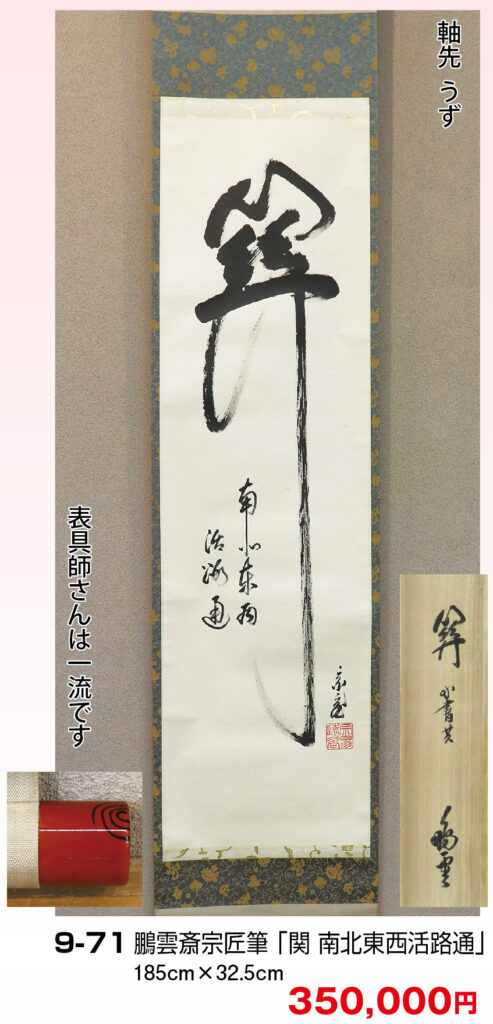 軸先 うず
関
南北東西
活路通
表具師さんは一流です
9-71 鵬雲斎宗匠筆「関 南北東西活路通」
185cm×32.5cm
350,000円